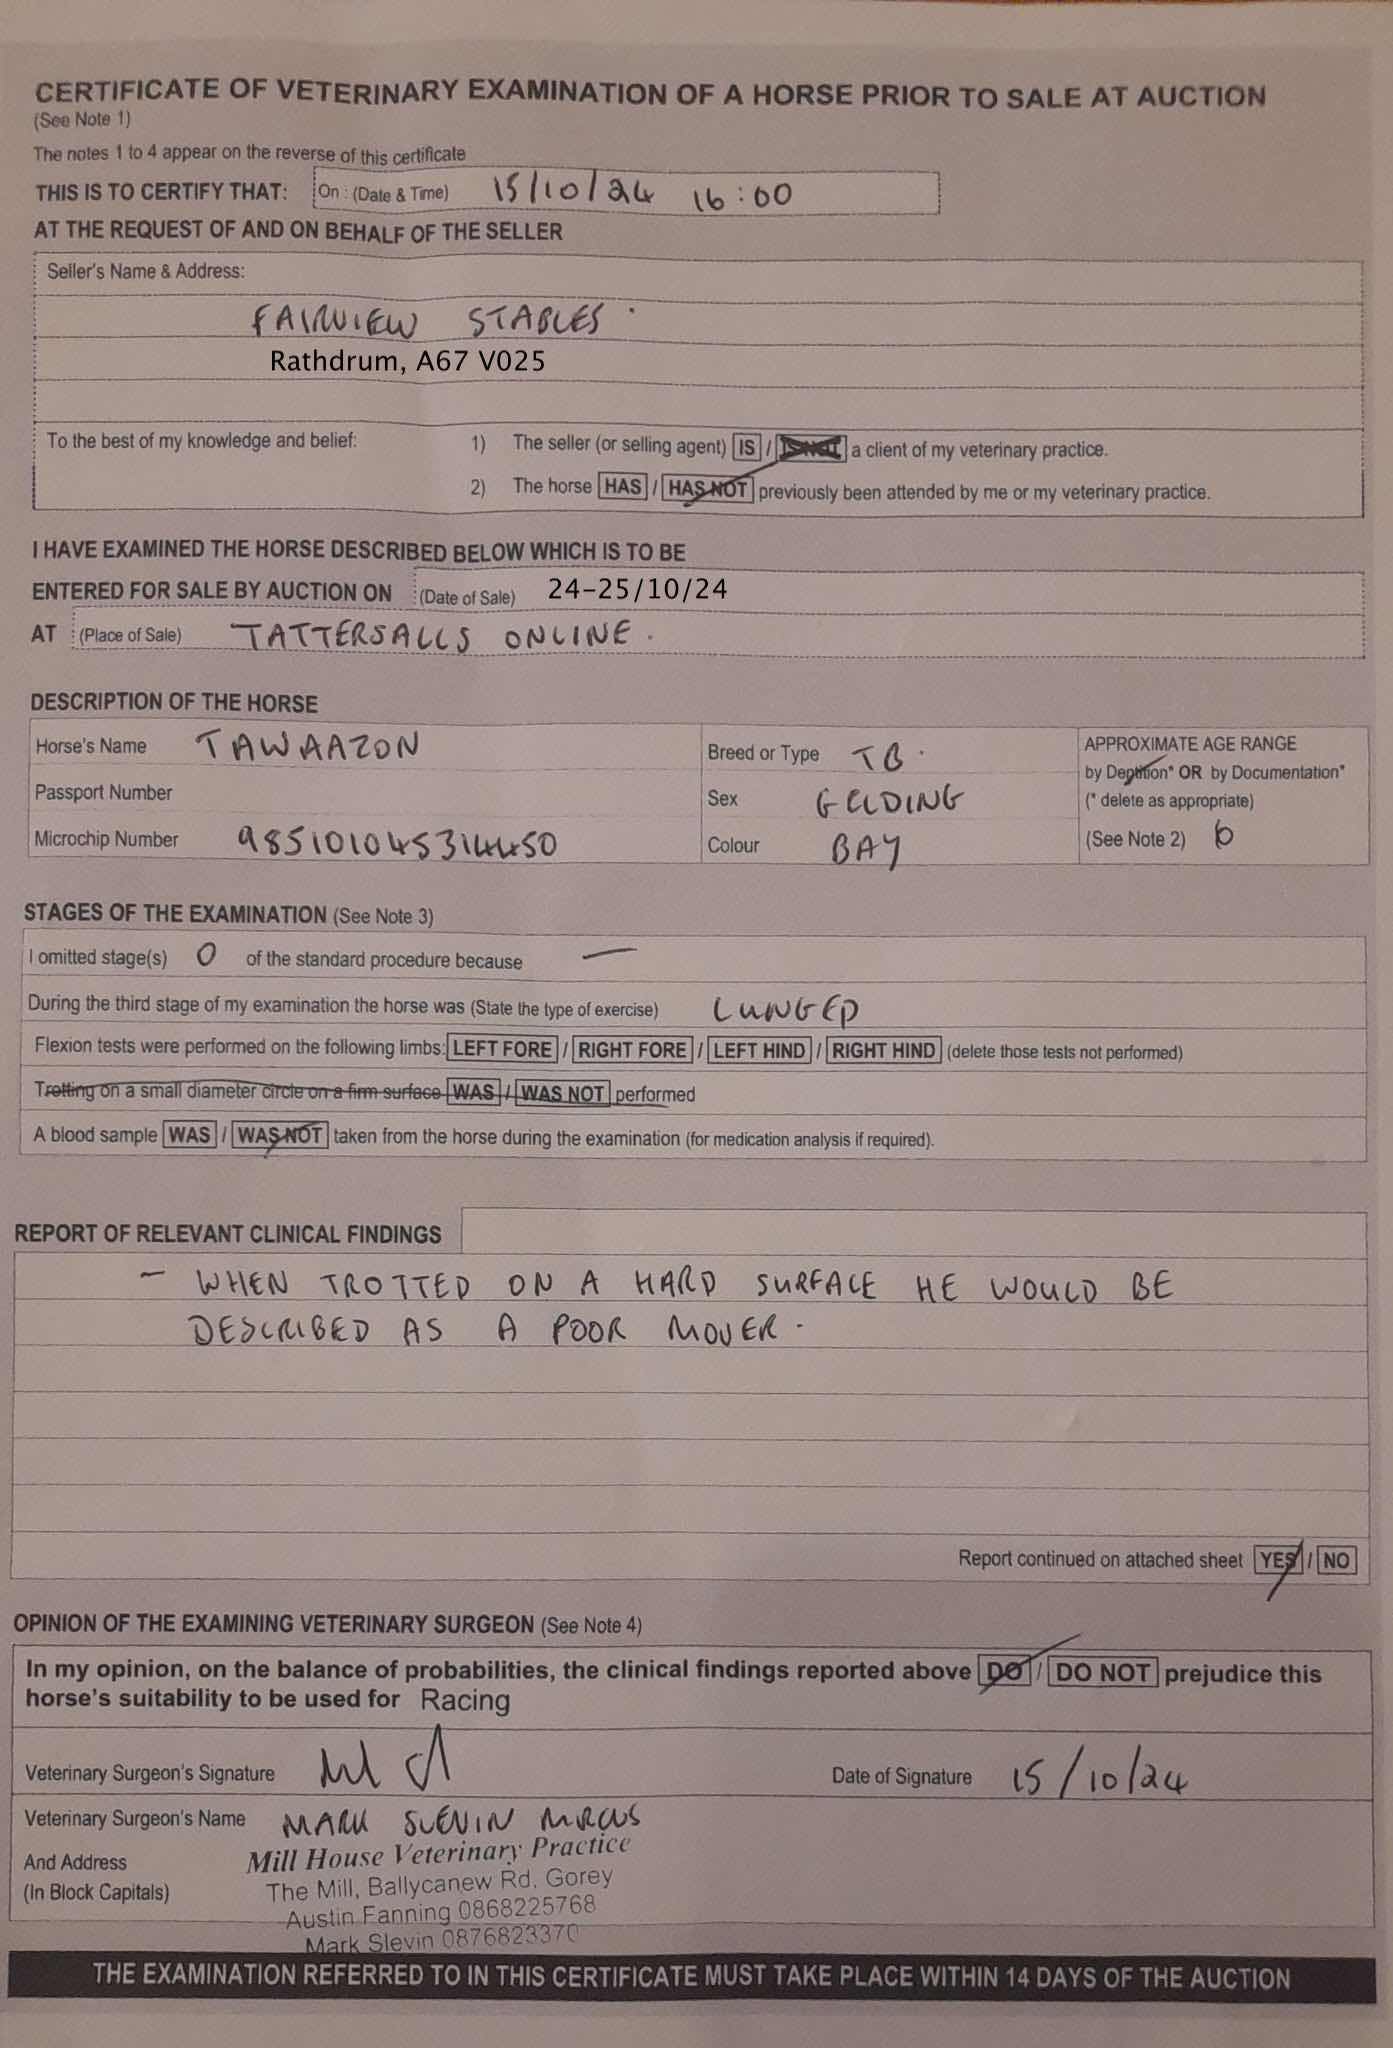 CERTIFICATE OF VETERINARY EXAMINATION OF A HORSE PRIOR TO SALE AT AUCTION
(See Note 1)
The notes 1 to 4 appear on the reverse of this certificate
THIS IS TO CERTIFY THAT: On : (Date & Time) 15/10/24 16:00
AT THE REQUEST OF AND ON BEHALF OF THE SELLER
Seller's Name & Address:
FAIRVIEW STABLES.
Rathdrum, A67 V025
To the best of my knowledge and belief: 1) The seller (or selling agent) IS / IS NOT a client of my veterinary practice.
2) The horse HAS / HAS NOT previously been attended by me or my veterinary practice.
I HAVE EXAMINED THE HORSE DESCRIBED BELOW WHICH IS TO BE
ENTERED FOR SALE BY AUCTION ON (Date of Sale) 24-25/10/24
AT (Place of Sale) TATTERSALLS ONLINE.
DESCRIPTION OF THE HORSE
Horse's Name TAWAAZON Breed or Type TB. APPROXIMATE AGE RANGE
by Dentition* OR by Documentation*
Passport Number Sex GELDING (* delete as appropriate)
Microchip Number 985101045314450 Colour BAY (See Note 2) 6
STAGES OF THE EXAMINATION (See Note 3)
I omitted stage(s) 0 of the standard procedure because —
During the third stage of my examination the horse was (State the type of exercise) LUNGED
Flexion tests were performed on the following limbs: LEFT FORE / RIGHT FORE / LEFT HIND / RIGHT HIND (delete those tests not performed)
Trotting on a small diameter circle on a firm surface WAS / WAS NOT performed
A blood sample WAS / WAS NOT taken from the horse during the examination (for medication analysis if required).
REPORT OF RELEVANT CLINICAL FINDINGS
- WHEN TROTTED ON A HARD SURFACE HE WOULD BE
DESCRIBED AS A POOR MOVER.
Report continued on attached sheet YES / NO
OPINION OF THE EXAMINING VETERINARY SURGEON (See Note 4)
In my opinion, on the balance of probabilities, the clinical findings reported above DO / DO NOT prejudice this
horse's suitability to be used for Racing
Veterinary Surgeon's Signature Date of Signature 15/10/24
Veterinary Surgeon's Name MARK SLEVIN MRCVS
And Address Mill House Veterinary Practice
(In Block Capitals) The Mill, Ballycanew Rd. Gorey
Austin Fanning 0868225768
Mark Slevin 0876823370
THE EXAMINATION REFERRED TO IN THIS CERTIFICATE MUST TAKE PLACE WITHIN 14 DAYS OF THE AUCTION